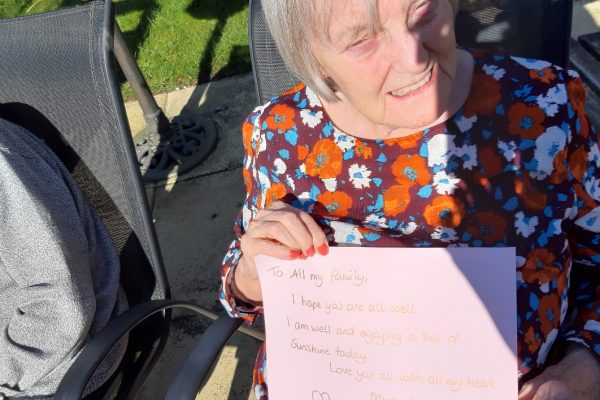 To All my family,
I hope you are all well.
I am well and enjoying a bit of
Sunshine today.
Love you all, with all my heart